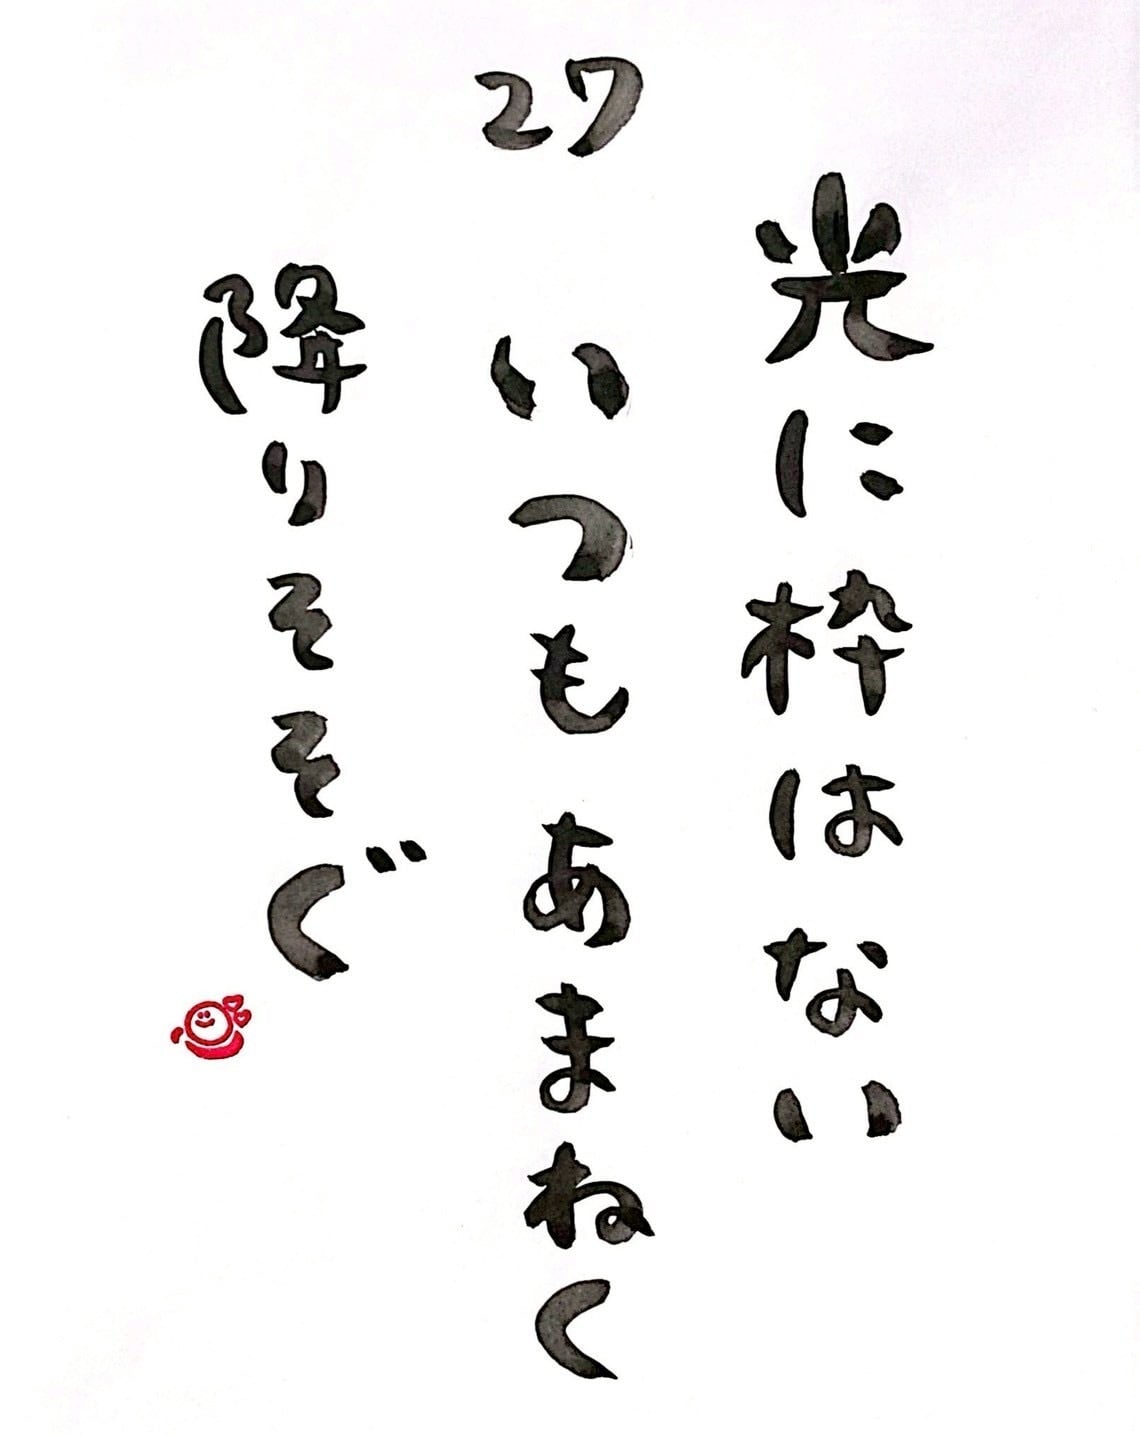 27
光に枠はない
いつもあまねく
降りそそぐ